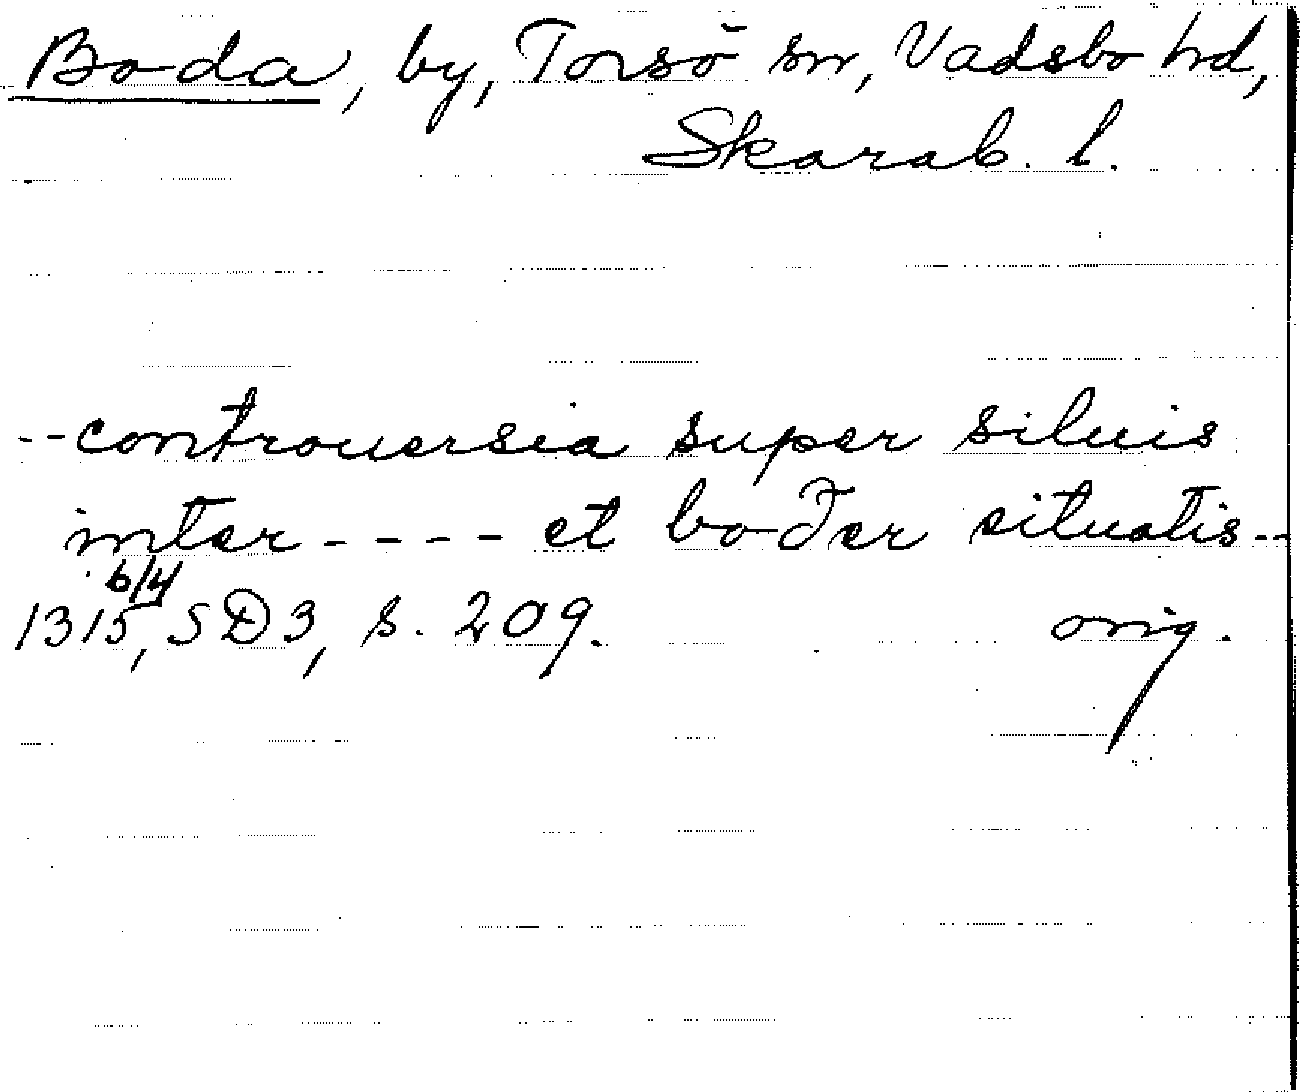 Boda, by, Torsö sn, Vadsbo hd,
Skarab. l.
--controuersia super siluis
inter ---- et boðer situatis--
6/4
1315, SD3, s. 209. orig.